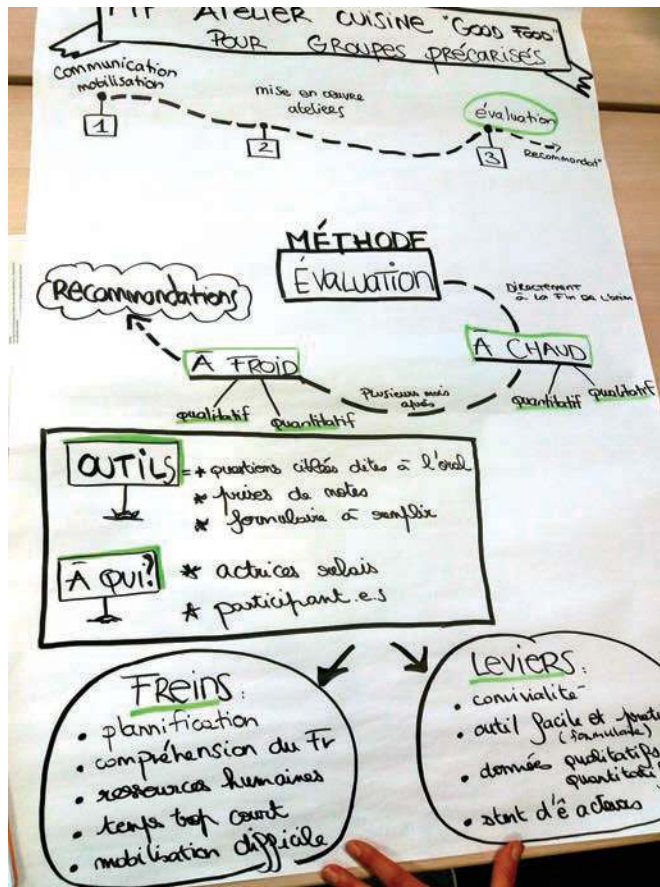 ATELIER CUISINE "GOOD FOOD"
POUR GROUPES PRÉCARISÉS
Communication
mobilisation
1
mise en œuvre
ateliers
2
évaluation
3
Recommandat°
MÉTHODE
ÉVALUATION
Recommandations
DIRECTEMENT
à la fin de l'anim
À CHAUD
quantitatif qualitatif
À FROID
qualitatif quantitatif
Plusieurs mois
après
OUTILS = * questions ciblées dites à l'oral
* prises de notes
* formulaire à remplir
À QUI? * actrices relais
* participant.e.s
FREINS:
• plannification
• compréhension du Fr
• ressources humaines
• temps trop court
• mobilisation difficile
LEVIERS:
• convivialité
• outil facile et
(formulaire)
• données qualitatifs
quantitatifs
• d'ê acteurs